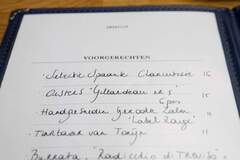 VOORGERECHTEN
Selectie Spaanse Charcuterie 16
Oesters "Gillardeau nr 5"
6 pers 15
Handgesneden Gerookte Zalm
"Label Rouge" 16
Tartaar van Tonijn
Burrata, "Radicchio di Treviso"